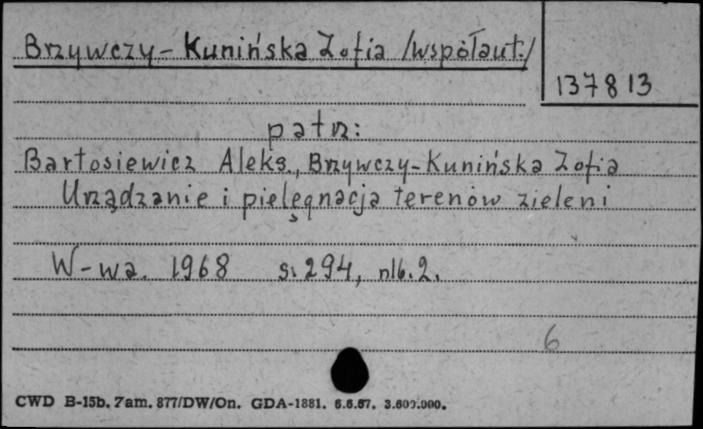 Brzywczy-Kunińska Zofia /współaut./
137813
patrz:
Bartosiewicz Aleks., Brzywczy-Kunińska Zofia
Urządzanie i pielęgnacja terenów zieleni
W-wa. 1968 s. 294, nlb. 2.
6
CWD B-15b. Zam. 877/DW/On. GDA-1881. 6.6.67. 3.600.000.